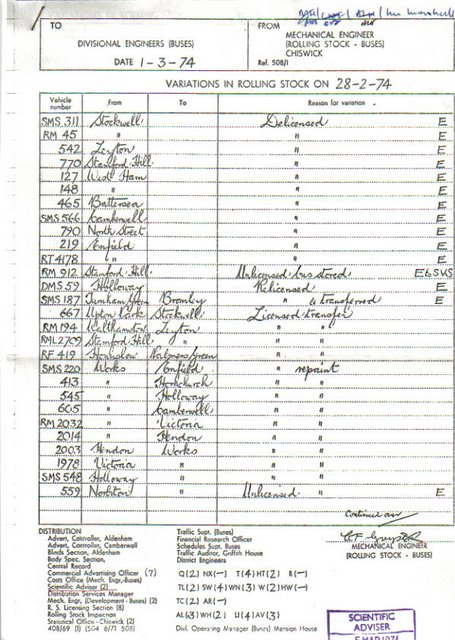 TO
DIVISIONAL ENGINEERS (BUSES)
DATE 1-3-74
FROM
MECHANICAL ENGINEER
(ROLLING STOCK - BUSES)
CHISWICK
Ref. 508/1
VARIATIONS IN ROLLING STOCK ON 28-2-74
Vehicle number From To Reason for variation
SMS 311 Stockwell Delicensed E
RM 45 " " E
542 Leyton " E
770 Stamford Hill " E
127 West Ham " E
148 " " E
465 Battersea " E
SMS 566 Camberwell " E
790 North Street " E
219 Enfield " E
RT 4178 " " E
RM 912 Stamford Hill Unlicensed bus stored E & SVS
DMS 59 Holloway Relicensed E
SMS 187 Turnham Green Bromley " & transferred E
667 Upton Park Stockwell Licensed transfer
RM 194 Walthamstow Leyton " "
RML 2709 Stamford Hill " " "
RF 419 Hounslow Palmers Green " "
SMS 220 Works Enfield " repaint
413 " Hornchurch " "
545 " Holloway " "
605 " Camberwell " "
RM 2032 " Victoria " "
2014 " Hendon " "
2003 Hendon Works " "
1978 Victoria " " "
SMS 548 Holloway " " "
559 Norbiton " Unlicensed " E
Continued over
MECHANICAL ENGINEER
(ROLLING STOCK - BUSES)
DISTRIBUTION
Advert, Controller, Aldenham
Advert, Controller, Camberwell
Blinds Section, Aldenham
Body Spec. Section,
Central Record
Commercial Advertising Officer (7)
Costs Office (Mech. Engr.-Buses)
Scientific Adviser (2)
Distribution Services Manager
Mech. Engr. (Development - Buses) (2)
R. S. Licensing Section (8)
Rolling Stock Inspection
Statistical Office - Chiswick (2)
408/69 (1) (504 6/71 508)
Traffic Supt. (Buses)
Financial Research Officer
Schedules Supt. Buses
Traffic Auditor, Griffith House
District Engineers
Q (2) NX (-) T (4) HT (2) R (-)
TL (2) SW (4) WN (3) W (2) HW (-)
TC (2) AR (-)
AL (3) WH (2) U (4) AV (3)
Div. Operating Manager (Buses) Mansion House
SCIENTIFIC
ADVISER
5 MAR 1974